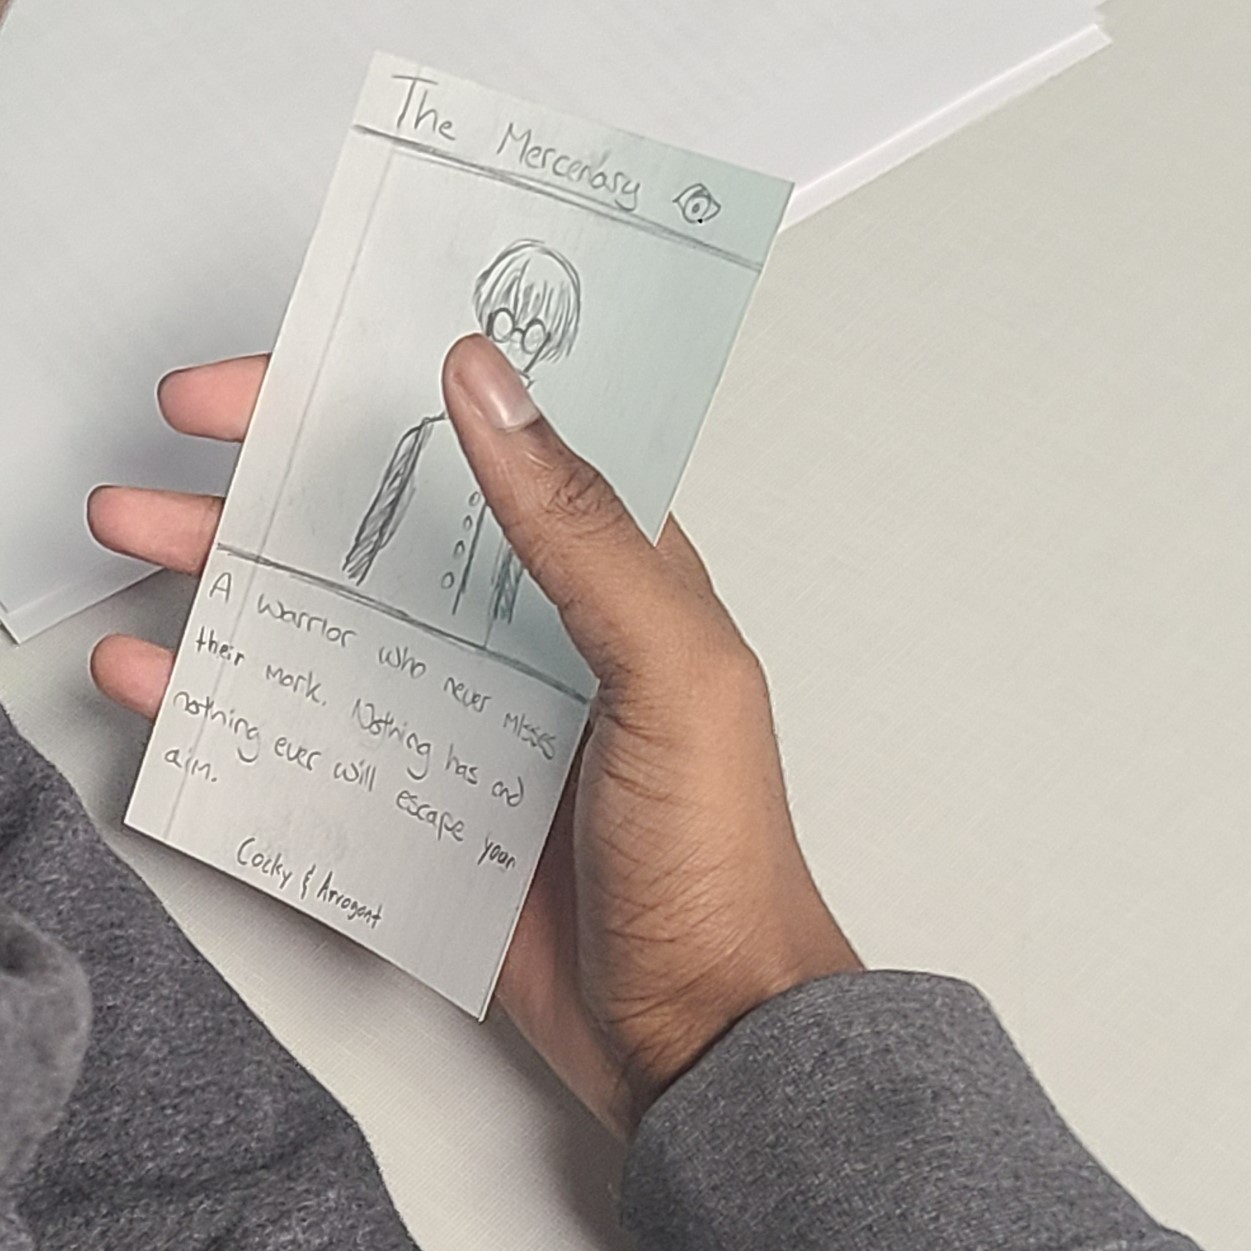 The Mercenary
A warrior who never misses
their mark. Nothing has and
nothing ever will escape your
aim.
Cocky & Arrogant